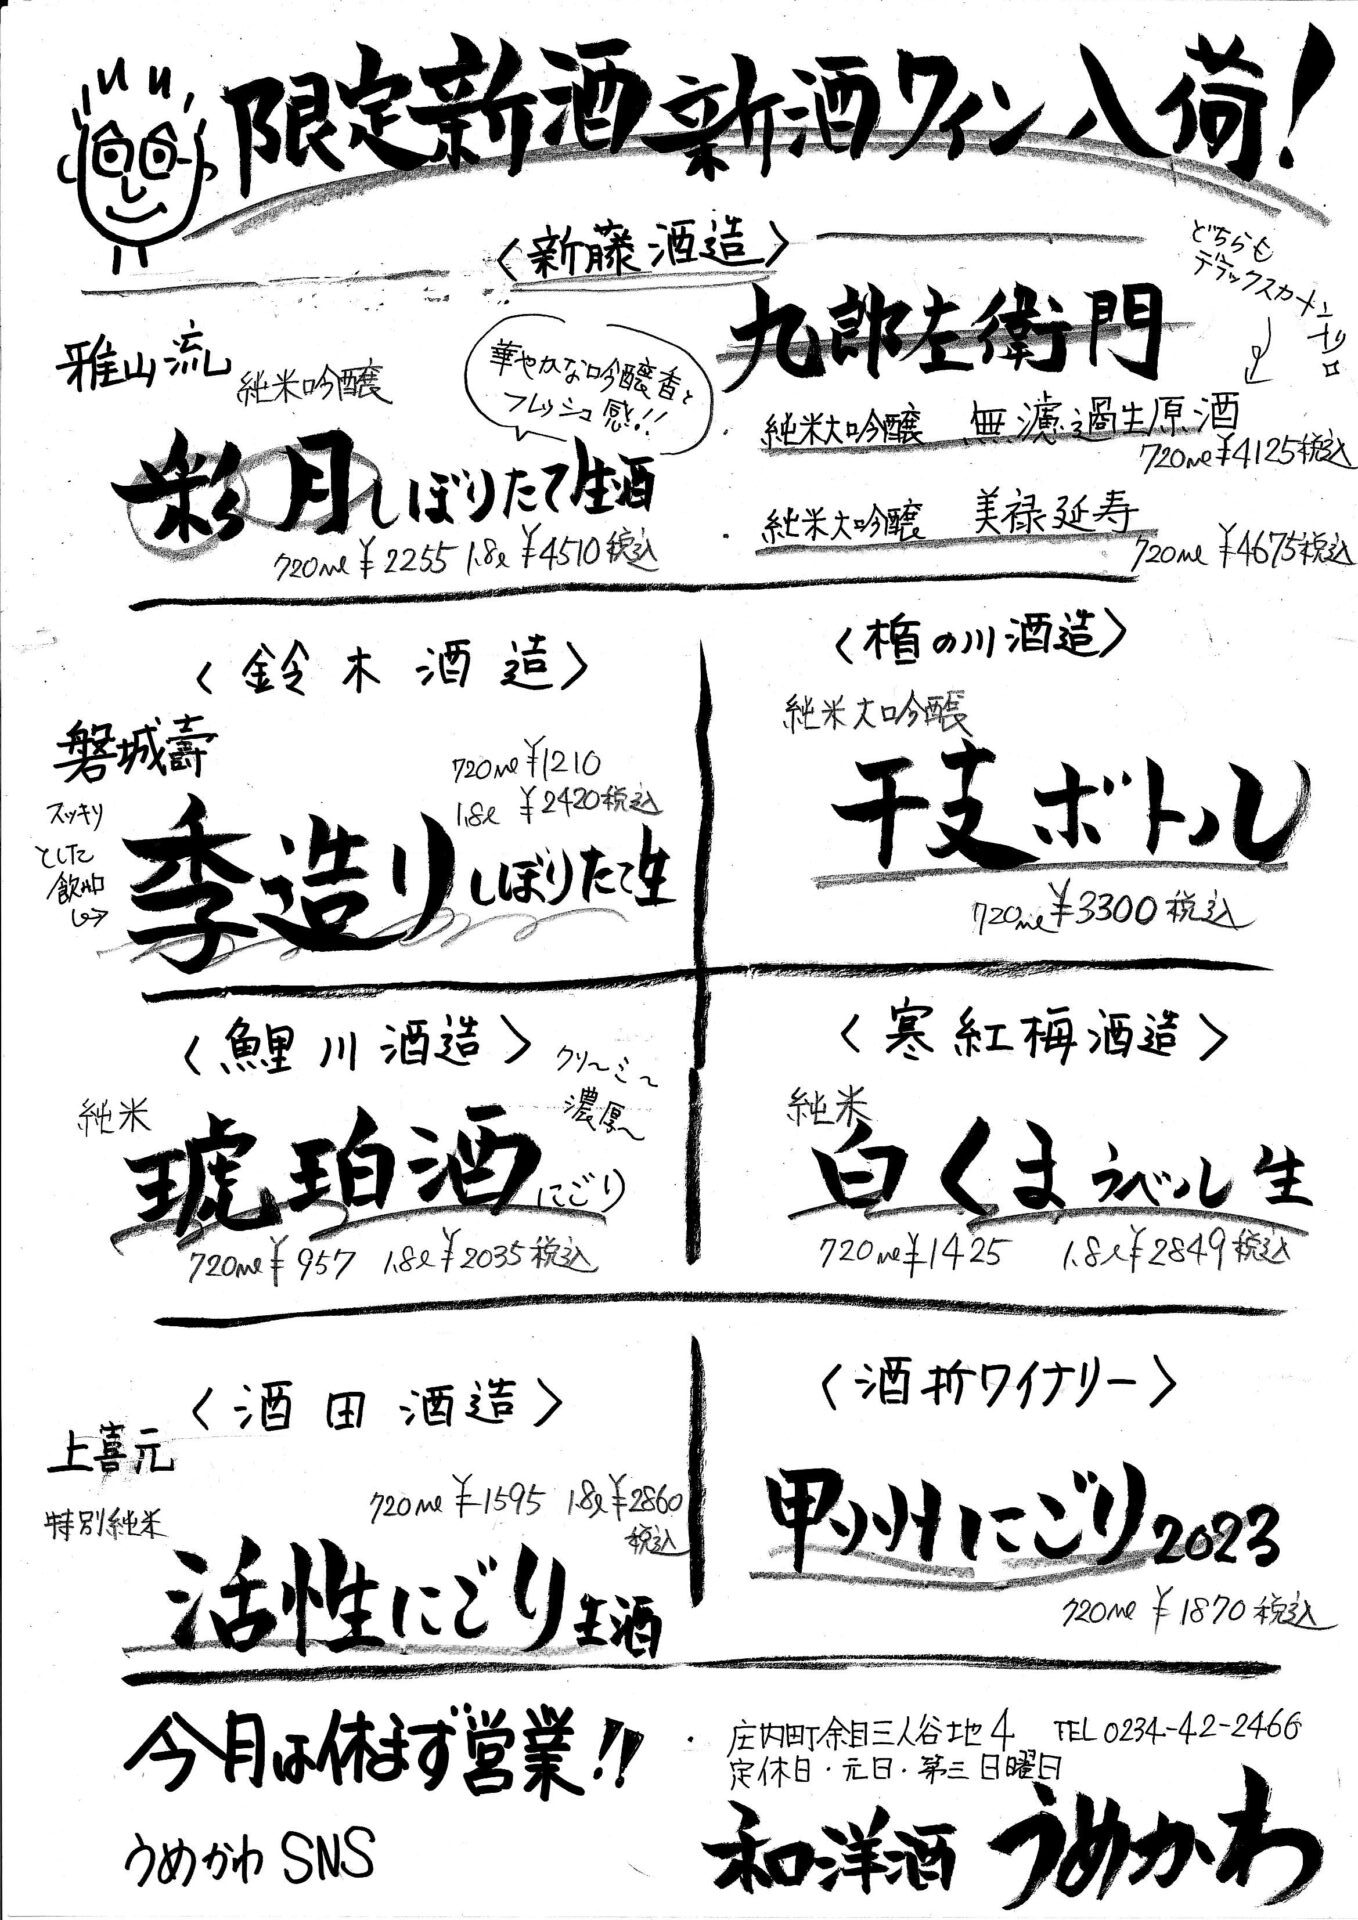 限定新酒 新酒ワイン入荷!
〈新藤酒造〉
雅山流
純米吟醸
華やかな吟醸香と
フレッシュ感!!
彩月しぼりたて生酒
720ml ¥2255 1.8l ¥4510税込
どちらも
デラックスカートン
入り
九郎左衛門
・純米大吟醸 無濾過生原酒
720ml ¥4125税込
・純米大吟醸 美禄延寿
720ml ¥4675税込
〈鈴木酒造〉
磐城壽
720ml ¥1210
1.8l ¥2420税込
スッキリ
とした
飲み口
季造りしぼりたて生
〈楯の川酒造〉
純米大吟醸
干支ボトル
720ml ¥3300税込
〈鯉川酒造〉
純米
クリ〜ミ〜
濃厚〜
琥珀酒にごり
720ml ¥957 1.8l ¥2035税込
〈寒紅梅酒造〉
純米
白くまラベル生
720ml ¥1425 1.8l ¥2849税込
〈酒田酒造〉
上喜元
特別純米
720ml ¥1595 1.8l ¥2860
税込
活性にごり生酒
〈酒折ワイナリー〉
甲州にごり2023
720ml ¥1870税込
今月は休まず営業!!
うめかわSNS
・庄内町余目三人谷地4 TEL0234-42-2466
定休日・元日・第三日曜日
和洋酒 うめかわ